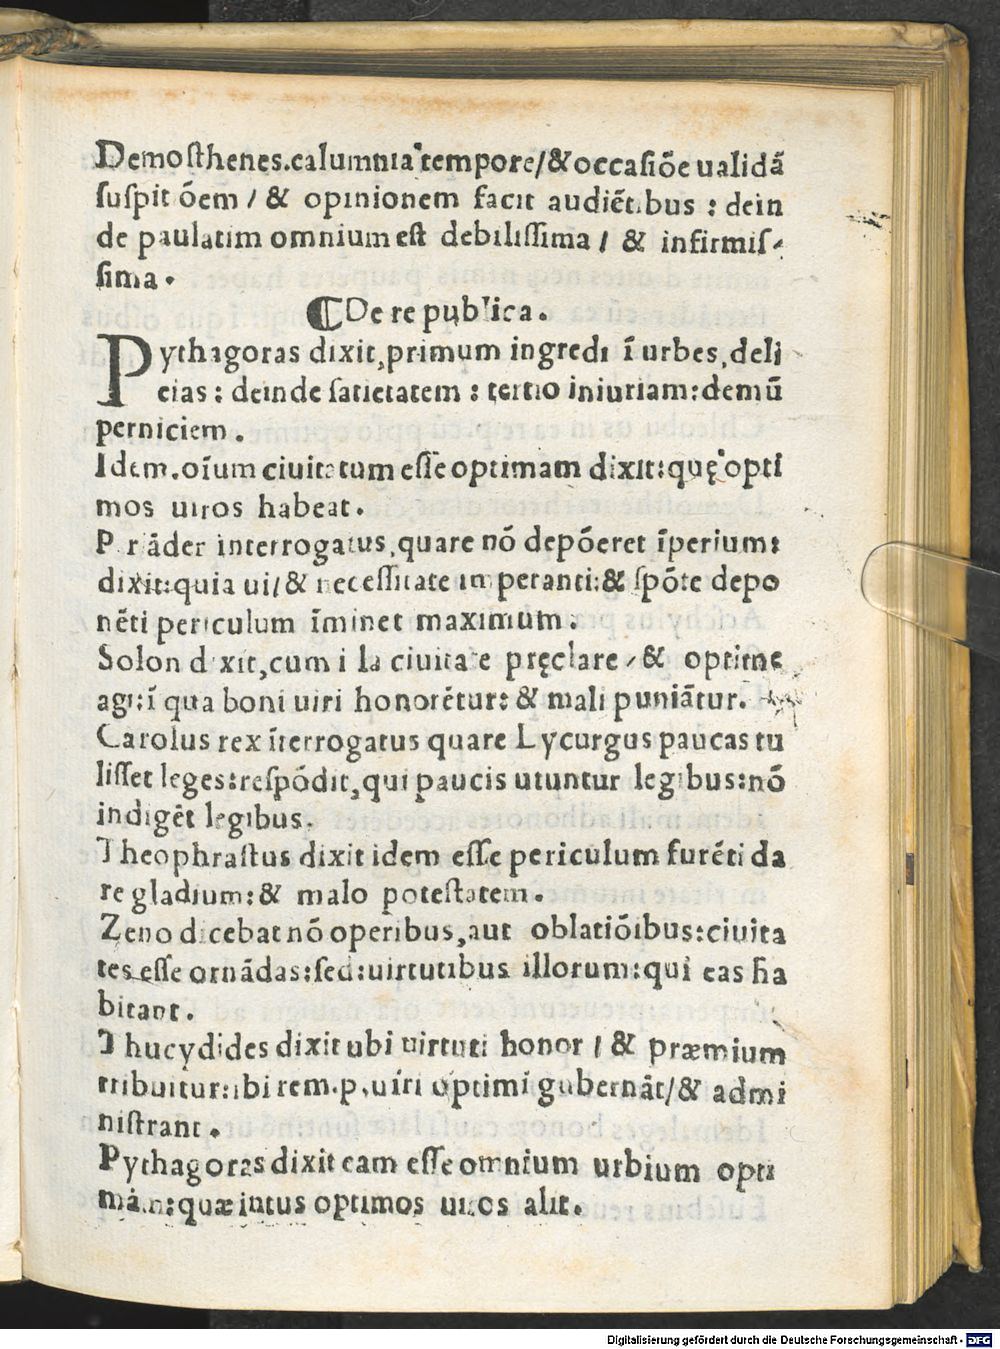 Demosthenes.calumnia tempore/& occasiõe ualidã
suspitiõem / & opinionem facit audiẽtibus : dein
de paulatim omnium est debilissima / & infirmis-
sima.
⸿De re publica.
Pythagoras dixit,primum ingredi ĩ urbes,deli
cias : deinde satietatem : tertio iniuriam:demũ
perniciem.
Idem.oĩum ciuitatum esse optimam dixit:quę opti
mos uiros habeat.
P riãder interrogatus,quare nõ depõeret ĩperium:
dixit:quia ui/& necessitate imperanti:& spõte depo
nẽti periculum ĩminet maximum.
Solon dixit,cum i la ciuitate pręclare / & optime
agi:ĩ qua boni uiri honorẽtur: & mali puniãtur.
Carolus rex ĩterrogatus quare Lycurgus paucas tu
lisset leges:respõdit,qui paucis utuntur legibus:nõ
indigẽt legibus.
Theophrastus dixit idem esse periculum furẽti da
re gladium:& malo potestatem.
Zeno dicebat nõ operibus,aut oblatiõibus:ciuita
tes esse ornãdas:sed:uirtutibus illorum:qui eas ha
bitant.
Thucydides dixit ubi uirtuti honor / & præmium
tribuitur:ibi rem.p.uiri optimi gubernãt/& admi
nistrant.
Pythagoras dixit eam esse omnium urbium opti
mam:quæ intus optimos uiros alit.
Digitalisierung gefördert durch die Deutsche Forschungsgemeinschaft - DFG